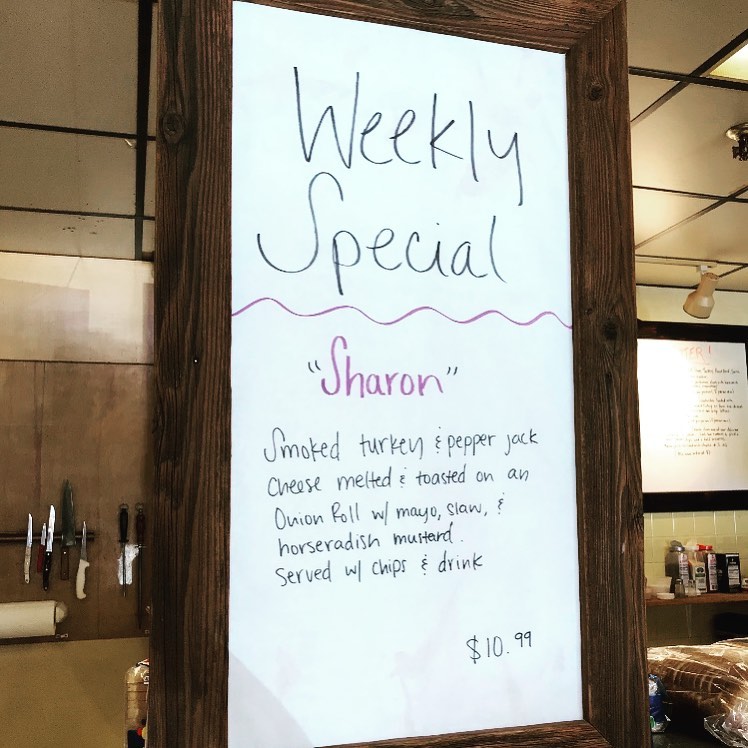 Weekly
Special
"Sharon"
Smoked turkey & pepper jack
cheese melted & toasted on an
Onion Roll w/ mayo, slaw, &
horseradish mustard.
Served w/ chips & drink
$10.99